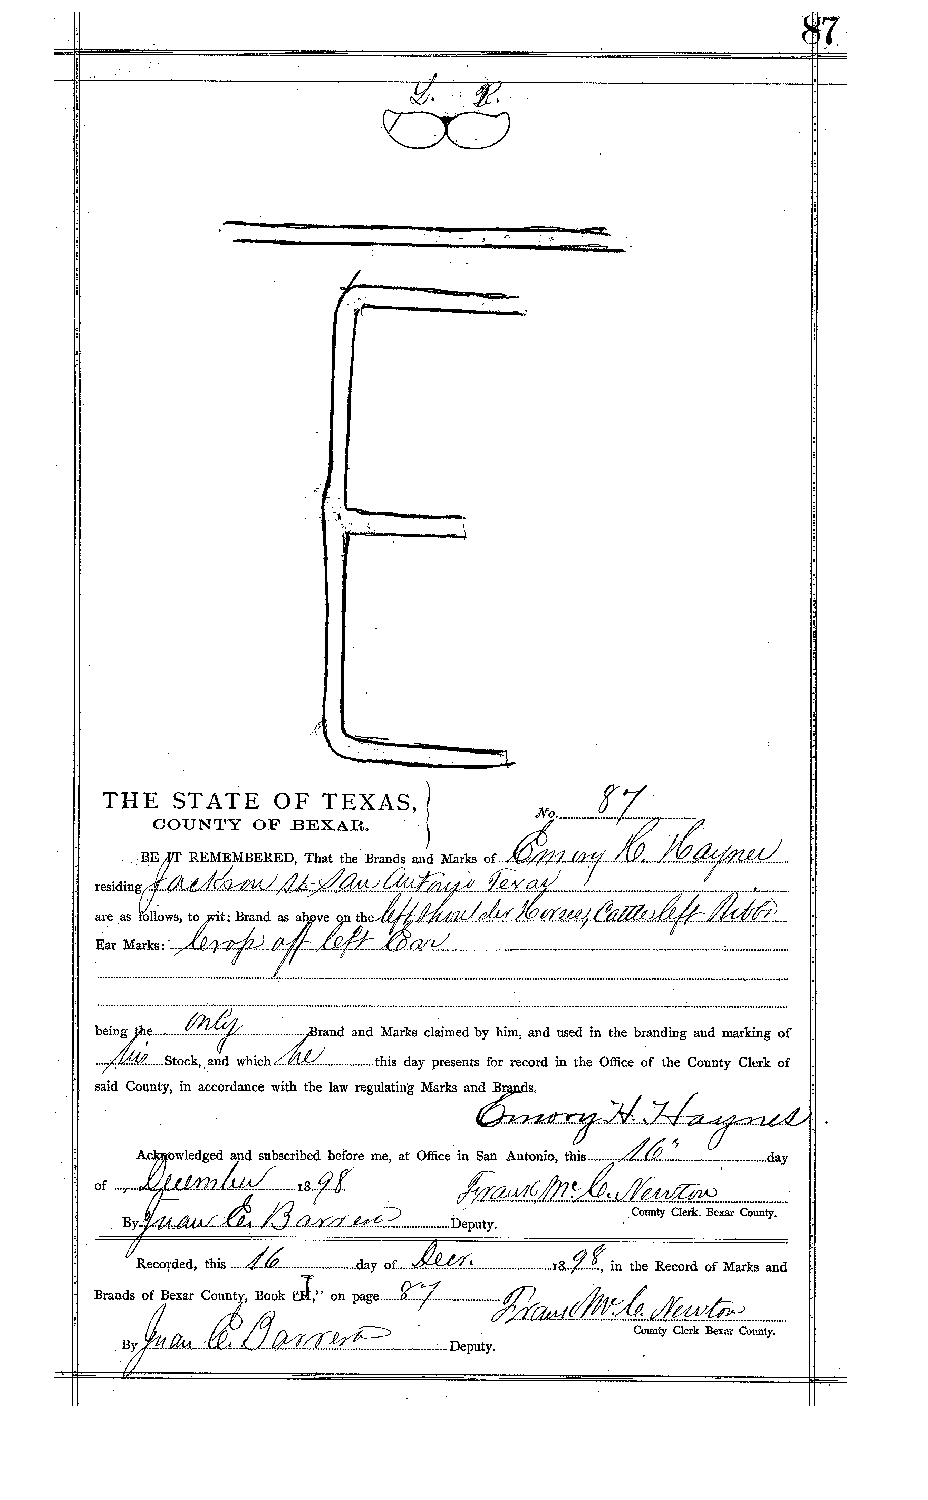 87
L. R.
E
THE STATE OF TEXAS,
COUNTY OF BEXAR.
No. 87
BE IT REMEMBERED, That the Brands and Marks of Emory H. Haynes
residing Jackson St San Antonio Texas
are as follows, to wit: Brand as above on the left shoulder Horses, Cattle left Ribbs
Ear Marks: Crop off left Ear
being the only Brand and Marks claimed by him, and used in the branding and marking of
his Stock, and which he this day presents for record in the Office of the County Clerk of
said County, in accordance with the law regulating Marks and Brands.
Emory H. Haynes
Acknowledged and subscribed before me, at Office in San Antonio, this 16" day
of December 1898 Frank Mc C. Newton
County Clerk. Bexar County.
By Juan E. Barrera Deputy.
Recorded, this 16 day of Decr. 1898, in the Record of Marks and
Brands of Bexar County, Book "I," on page 87 Frank Mc C. Newton
County Clerk Bexar County.
By Juan E. Barrera Deputy.